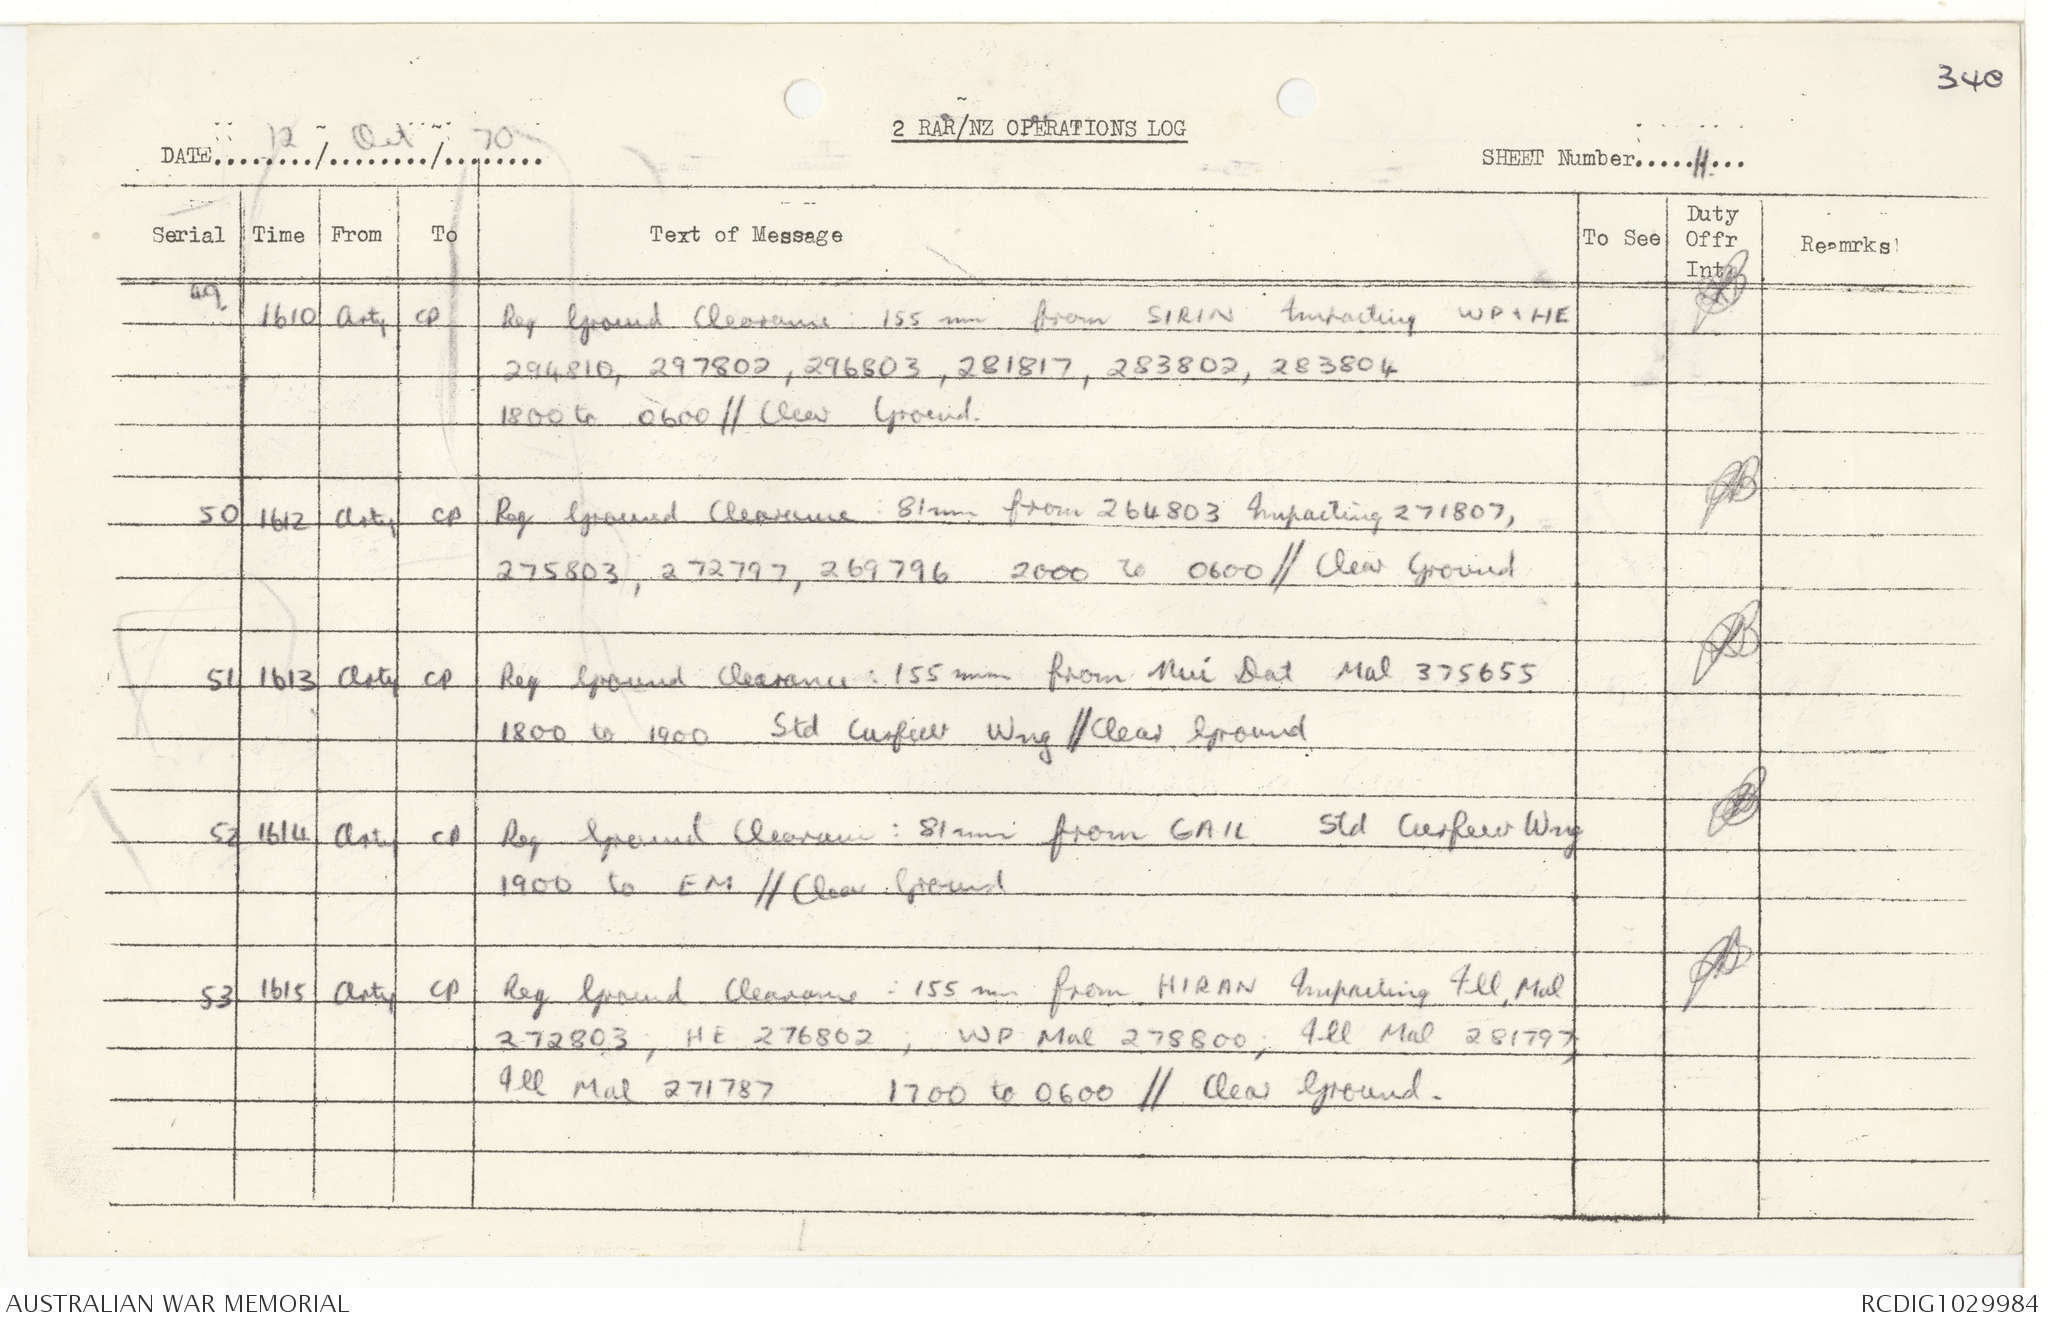 340
2 RAR/NZ OPERATIONS LOG
DATE 12 / Oct / 70
SHEET Number 11
Serial Time From To Text of Message To See Duty Offr Int Remrks
49 1610 Arty CP Req Ground Clearance 155 mm from SIRIN Impacting WP + HE
294810, 297802, 296803, 281817, 283802, 283804
1800 to 0600 // Clear Ground.
50 1612 Arty CP Req Ground Clearance : 81mm from 264803 Impacting 271807,
275803, 272797, 269796 2000 to 0600 // Clear Ground
51 1613 Arty CP Req Ground Clearance : 155 mm from Nui Dat Mal 375655
1800 to 1900 Std Curfew Wng // Clear Ground
52 1614 Arty CP Req Ground Clearance : 81mm from GAIL Std Curfew Wng
1900 to EM // Clear Ground
53 1615 Arty CP Req Ground Clearance : 155 mm from HIRAN Impacting Ill, Mal
272803, HE 276802, WP Mal 278800, Ill Mal 281797,
Ill Mal 271787 1700 to 0600 // Clear Ground.
AUSTRALIAN WAR MEMORIAL
RCDIG1029984